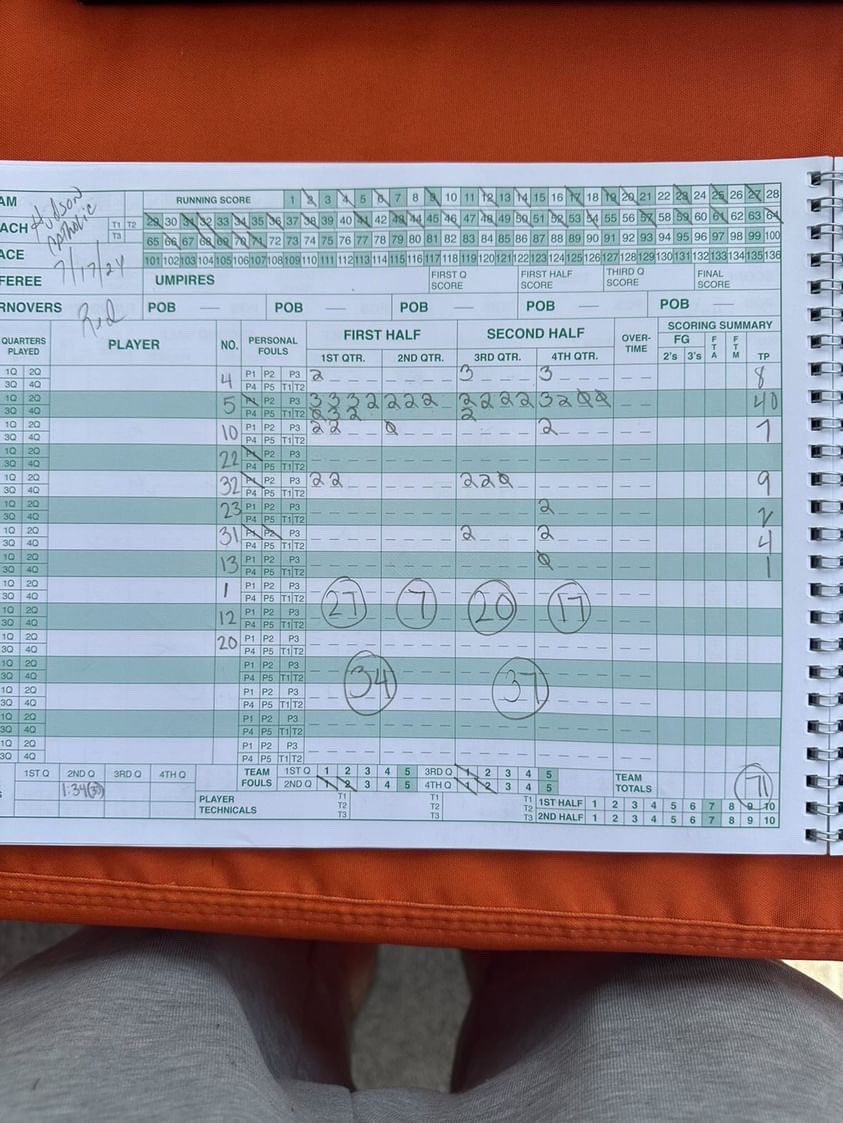 AM Hudson RUNNING SCORE 1 2 3 4 5 6 7 8 9 10 11 12 13 14 15 16 17 18 19 20 21 22 23 24 25 26 27 28
ACH Catholic T1 T2 29 30 31 32 33 34 35 36 37 38 39 40 41 42 43 44 45 46 47 48 49 50 51 52 53 54 55 56 57 58 59 60 61 62 63 64
T3 65 66 67 68 69 70 71 72 73 74 75 76 77 78 79 80 81 82 83 84 85 86 87 88 89 90 91 92 93 94 95 96 97 98 99 100
ACE 7/17/24 101 102 103 104 105 106 107 108 109 110 111 112 113 114 115 116 117 118 119 120 121 122 123 124 125 126 127 128 129 130 131 132 133 134 135 136
FEREE UMPIRES FIRST Q SCORE FIRST HALF SCORE THIRD Q SCORE FINAL SCORE
RNOVERS Red POB POB POB POB POB
QUARTERS PLAYED PLAYER NO. PERSONAL FOULS FIRST HALF SECOND HALF OVER-TIME SCORING SUMMARY
1ST QTR. 2ND QTR. 3RD QTR. 4TH QTR. FG 2's 3's FTA FTM TP
1Q 2Q 4 P1 P2 P3 2 3 3 8
3Q 4Q P4 P5 T1 T2
1Q 2Q 5 P1 P2 P3 3 3 3 2 2 2 2 2 2 2 2 3 2 0 0 40
3Q 4Q P4 P5 T1 T2 0 3 2 2
1Q 2Q 10 P1 P2 P3 2 2 0 2 7
3Q 4Q P4 P5 T1 T2
1Q 2Q 22 P1 P2 P3
3Q 4Q P4 P5 T1 T2
1Q 2Q 32 P1 P2 P3 2 2 2 2 0 9
3Q 4Q P4 P5 T1 T2
1Q 2Q 23 P1 P2 P3 2 2
3Q 4Q P4 P5 T1 T2
1Q 2Q 31 P1 P2 P3 2 2 4
3Q 4Q P4 P5 T1 T2
1Q 2Q 13 P1 P2 P3 0 1
3Q 4Q P4 P5 T1 T2
1Q 2Q 1 P1 P2 P3 27 7 20 17
3Q 4Q P4 P5 T1 T2
1Q 2Q 12 P1 P2 P3
3Q 4Q P4 P5 T1 T2
1Q 2Q 20 P1 P2 P3
3Q 4Q P4 P5 T1 T2
1Q 2Q P1 P2 P3 34 37
3Q 4Q P4 P5 T1 T2
1Q 2Q P1 P2 P3
3Q 4Q P4 P5 T1 T2
1Q 2Q P1 P2 P3
3Q 4Q P4 P5 T1 T2
1Q 2Q P1 P2 P3
3Q 4Q P4 P5 T1 T2
1ST Q 2ND Q 3RD Q 4TH Q TEAM FOULS 1ST Q 1 2 3 4 5 3RD Q 1 2 3 4 5 TEAM TOTALS 71
S 2ND Q 1 2 3 4 5 4TH Q 1 2 3 4 5
PLAYER TECHNICALS T1 T1 T1 1ST HALF 1 2 3 4 5 6 7 8 9 10
T2 T2 T2
T3 T3 T3 2ND HALF 1 2 3 4 5 6 7 8 9 10